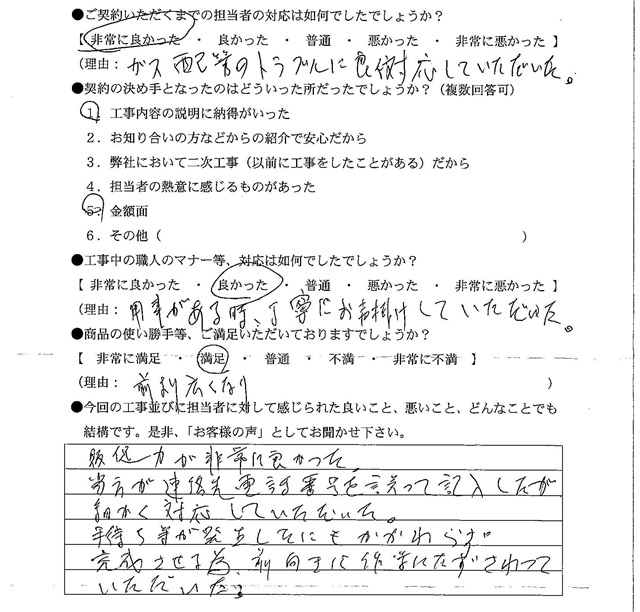 ●ご契約いただくまでの担当者の対応は如何でしたでしょうか?
【 非常に良かった ・ 良かった ・ 普通 ・ 悪かった ・ 非常に悪かった 】
(理由: ガス配管のトラブルに良く対応していただいた。
●契約の決め手となったのはどういった所だったでしょうか?(複数回答可)
1.工事内容の説明に納得がいった
2.お知り合いの方などからの紹介で安心だから
3.弊社において二次工事(以前に工事をしたことがある)だから
4.担当者の熱意に感じるものがあった
5.金額面
6.その他( )
●工事中の職人のマナー等、対応は如何でしたでしょうか?
【 非常に良かった ・ 良かった ・ 普通 ・ 悪かった ・ 非常に悪かった 】
(理由: 用事がある時、丁寧にお声掛けしていただいた。
●商品の使い勝手等、ご満足いただいておりますでしょうか?
【 非常に満足 ・ 満足 ・ 普通 ・ 不満 ・ 非常に不満 】
(理由: 前より広くなり )
●今回の工事並びに担当者に対して感じられた良いこと、悪いこと、どんなことでも
結構です。是非、「お客様の声」としてお聞かせ下さい。
販促力が非常に良かった。
当方が連絡先電話番号を誤って記入したが
細かく対応していただいた。
手待ち等が発生したにもかかわらず
完成させる為、前向きに作業にたずさわって
いただいた。